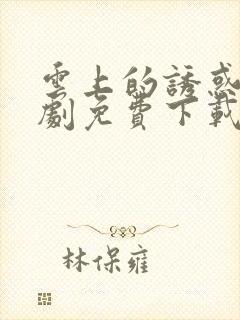 雲上的誘惑
劇免費下載
林保雍